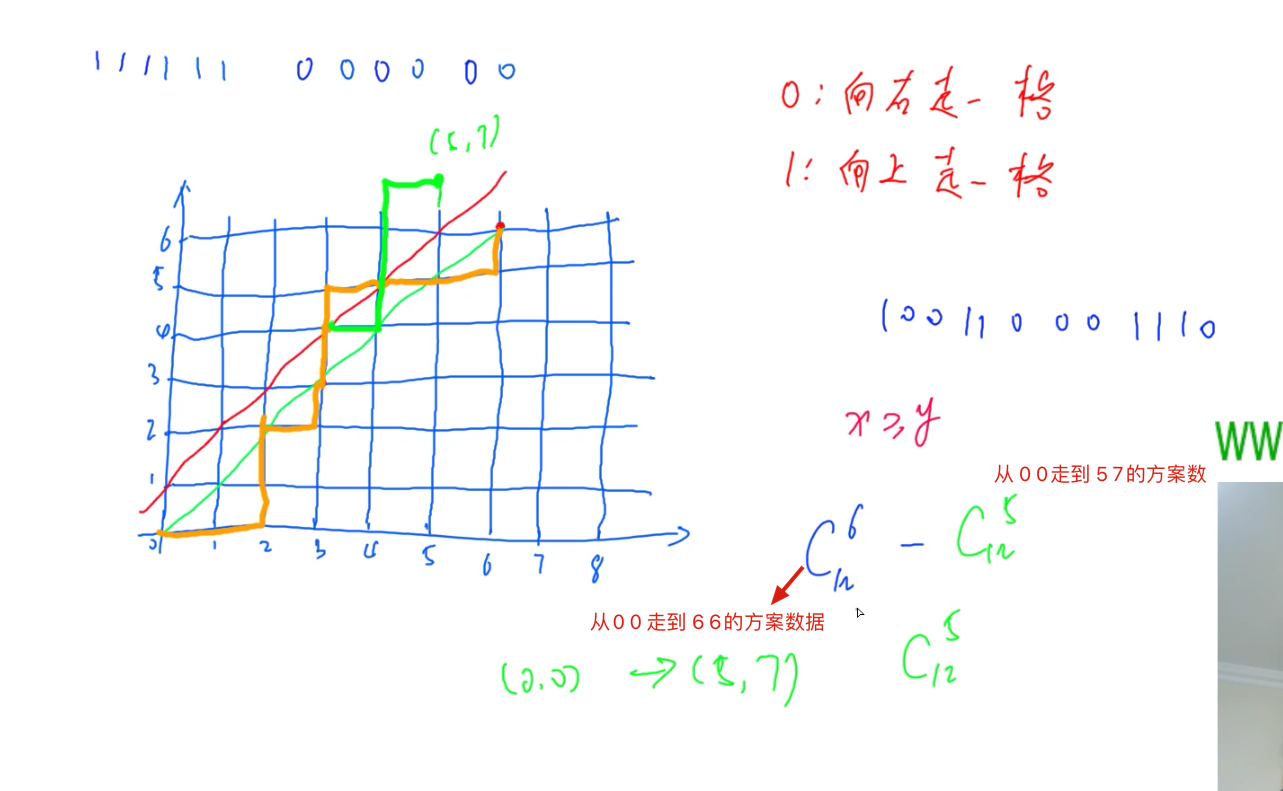 1 1 1 1 1 1 0 0 0 0 0 0
0：向右走一格
(5,7)
1：向上走一格
6
5
4
3
2
1
0 1 2 3 4 5 6 7 8
1 0 0 1 1 0 0 0 1 1 1 0
x ≥ y
WW
从００走到５７的方案数
C₁₂⁶ − C₁₂⁵
从００走到６６的方案数据
(0,0) → (5,7) C₁₂⁵